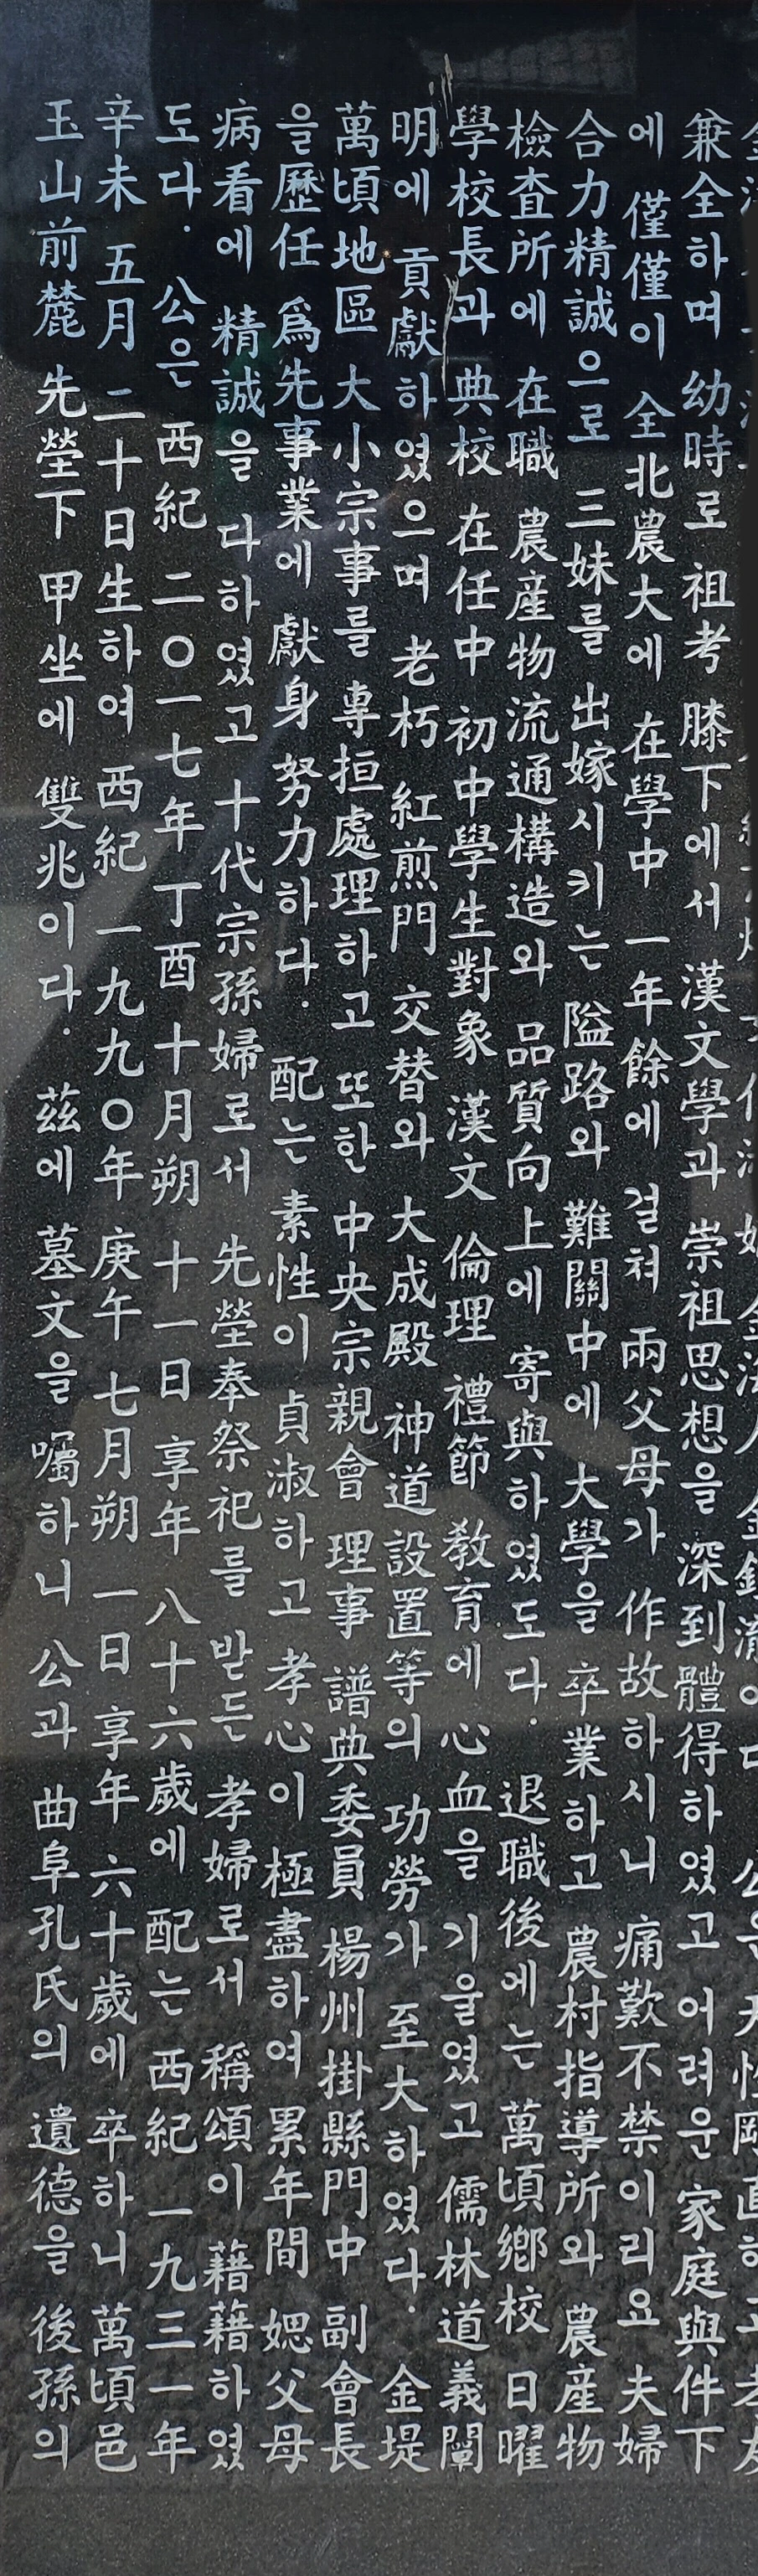 兼全하며 幼時로 祖考 膝下에서 漢文學과 崇祖思想을 深到體得하였고 어려운 家庭與件下
에 僅僅이 全北農大에 在學中 一年餘에 걸쳐 兩父母가 作故하시니 痛歎不禁이리요 夫婦
合力精誠으로 三妹를 出嫁시키는 隘路와 難關中에 大學을 卒業하고 農村指導所와 農産物
檢査所에 在職 農産物流通構造와 品質向上에 寄與하였도다. 退職後에는 萬頃鄕校 日曜
學校長과 典校 在任中 初中學生對象 漢文 倫理 禮節 敎育에 心血을 기울였고 儒林道義闡
明에 貢獻하였으며 老朽 紅煎門 交替와 大成殿 神道設置等의 功勞가 至大하였다. 金堤
萬頃地區 大小宗事를 專担處理하고 또한 中央宗親會 理事 譜典委員 楊州掛縣門中 副會長
을歷任 爲先事業에 獻身 努力하다. 配는 素性이 貞淑하고 孝心이 極盡하여 累年間 媤父母
病看에 精誠을 다하였고 十代宗孫婦로서 先塋奉祭祀를 받든 孝婦로서 稱頌이 藉藉하였
도다. 公은 西紀 二〇一七年丁酉十月朔 十一日 享年 八十六歲에 配는 西紀 一九三一年
辛未 五月 二十日生하여 西紀 一九九〇年 庚午 七月朔 一日 享年 六十歲에 卒하니 萬頃邑
玉山前麓 先塋下 甲坐에 雙兆이다. 茲에 墓文을 囑하니 公과 曲阜孔氏의 遺德을 後孫의